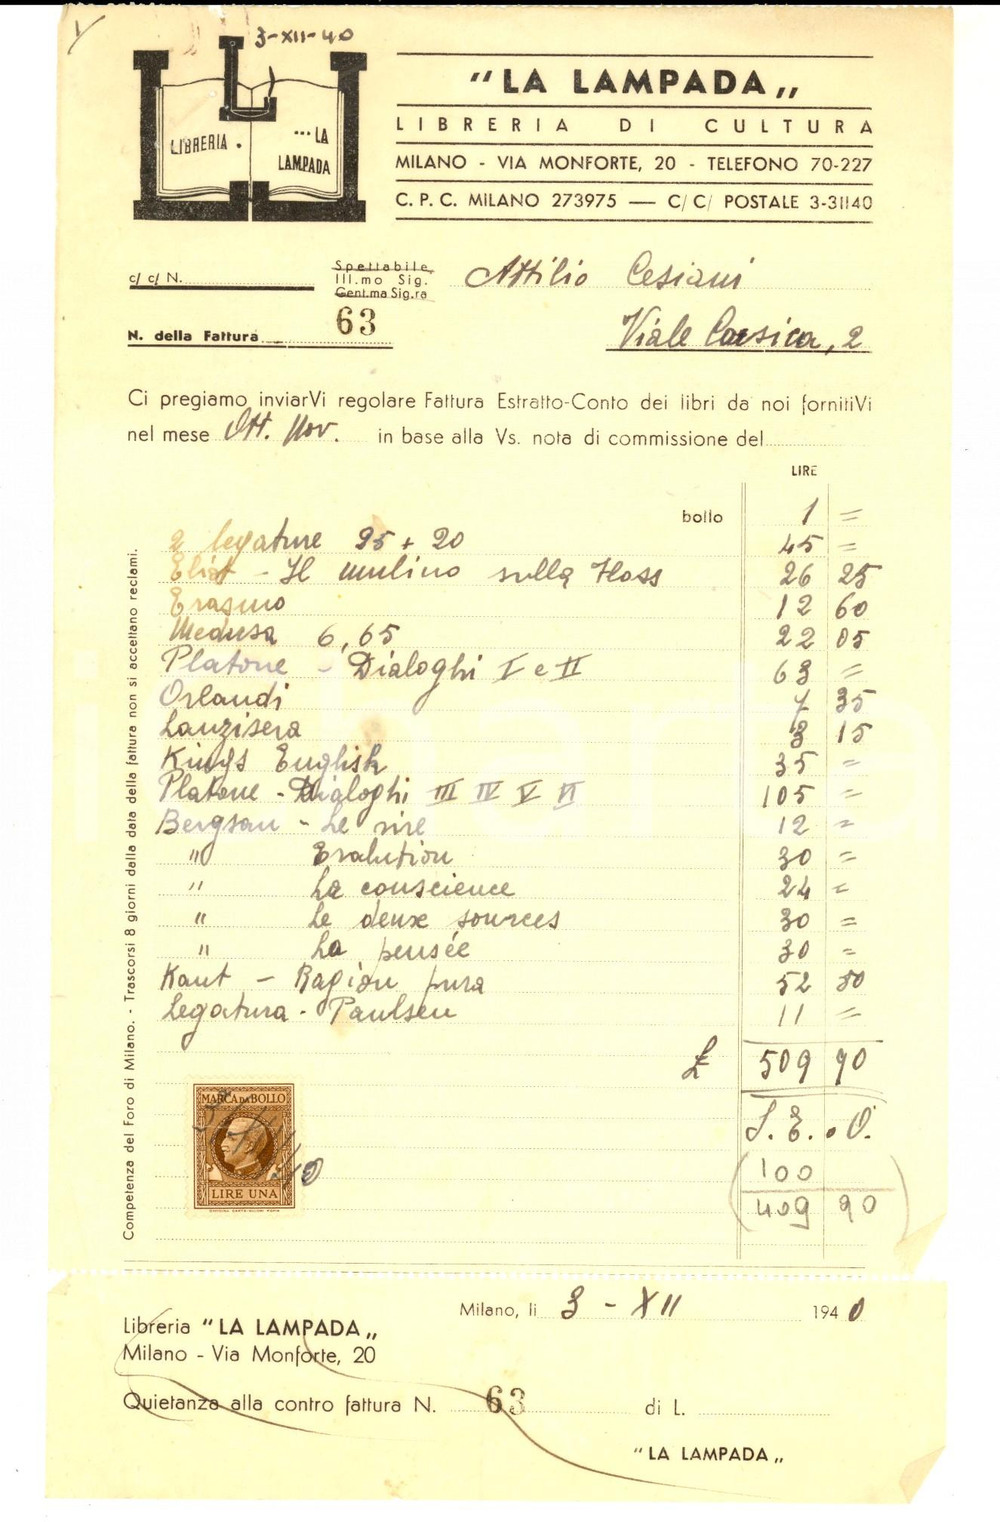 3-XII-40
LIBRERIA ... LA LAMPADA
"LA LAMPADA„
LIBRERIA DI CULTURA
MILANO - VIA MONFORTE, 20 - TELEFONO 70-227
C. P. C. MILANO 273975 — C/C/ POSTALE 3-31140
c/ c/ N.
Spettabile
Ill.mo Sig. Attilio Cesiani
Gent.ma Sig.ra
N. della Fattura 63
Viale Corsica, 2
Ci pregiamo inviarVi regolare Fattura Estratto-Conto dei libri da noi fornitiVi
nel mese Ott. Nov. in base alla Vs. nota di commissione del
LIRE
bollo 1 =
2 legature 25 + 20 45 =
Eliot - Il mulino sulla Floss 26 25
Erasmo 12 60
Medusa 6,65 22 05
Platone - Dialoghi I e II 63 =
Orlandi 7 35
Lanzisera 3 15
Kings English 35 =
Platone - Dialoghi III IV V VI 105 =
Bergson - Le rire 12 =
" Evolution 30 =
" La conscience 24 =
" Le deux sources 30 =
" La pensée 30 =
Kant - Ragion pura 52 50
Legatura - Paulsen 11 =
£ 509 90
S. E. . O.
100
409 90
Competenza del Foro di Milano. - Trascorsi 8 giorni dalla data della fattura non si accettano reclami.
MARCA DA BOLLO
LIRE UNA
Milano, li 3 - XII 1940
Libreria "LA LAMPADA„
Milano - Via Monforte, 20
Quietanza alla contro fattura N. 63 di L.
"LA LAMPADA„